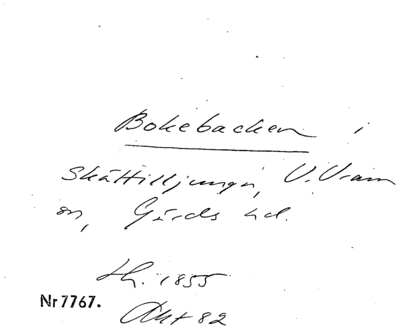 Bokebacken i
Skättilljunga, V. Vram
sn, Gärds hd.
th. 1855
Nr 7767.
Akt 82